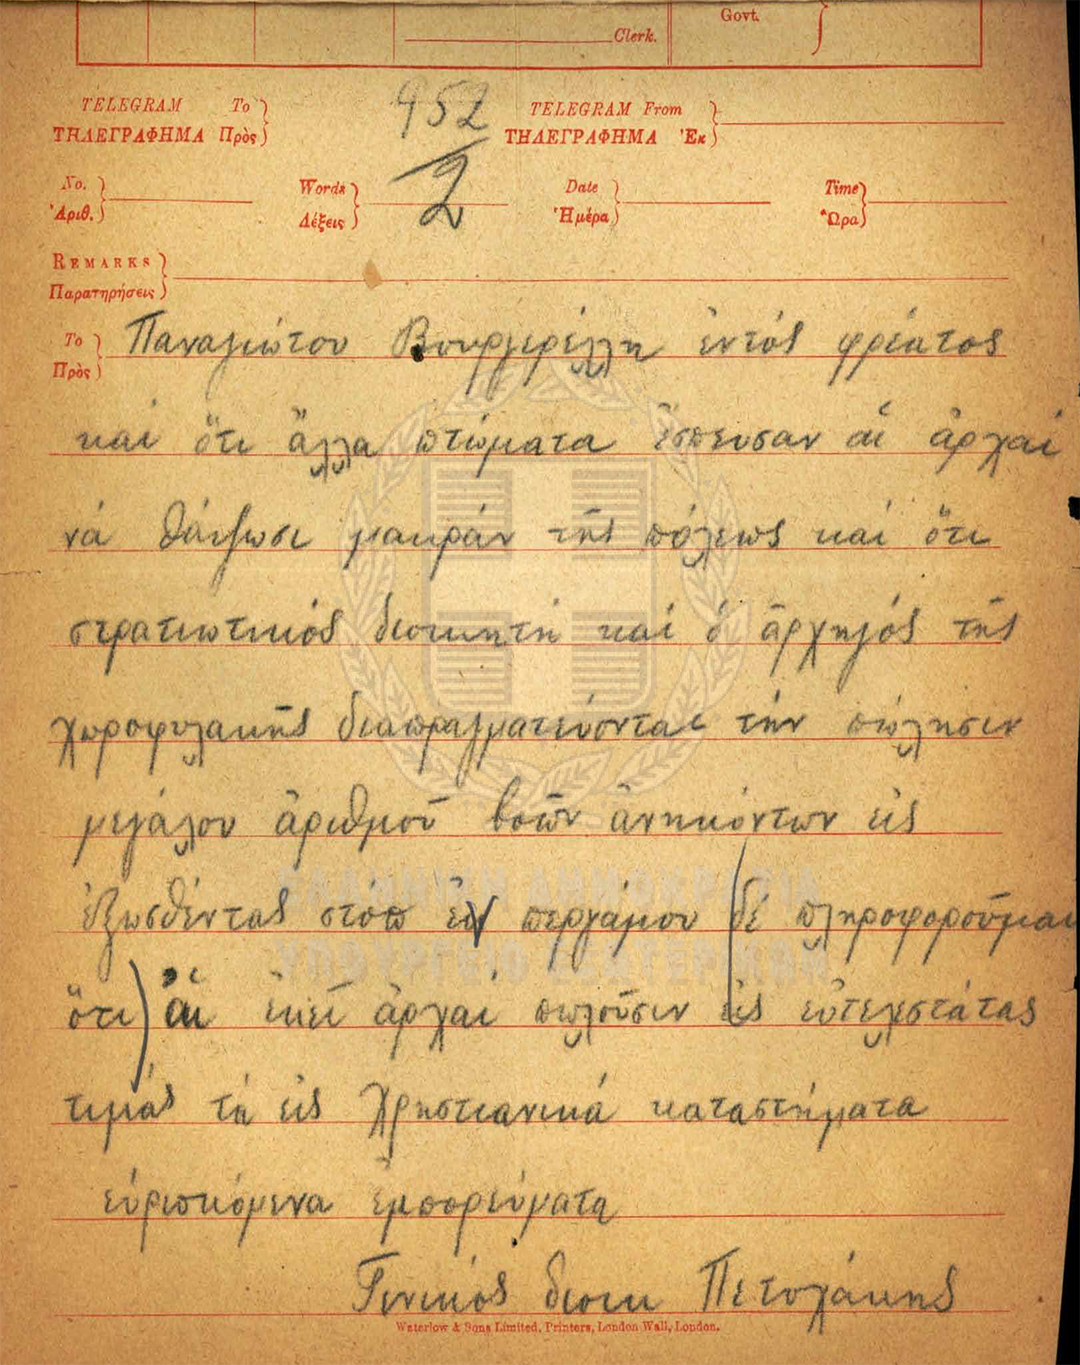 Govt.
Clerk.
952
2
TELEGRAM To
ΤΗΛΕΓΡΑΦΗΜΑ Πρὸς
TELEGRAM From
ΤΗΛΕΓΡΑΦΗΜΑ Ἐκ
No.
Ἀριθ.
Words
Λέξεις
Date
Ἡμέρα
Time
Ὥρα
REMARKS
Παρατηρήσεις
To
Πρὸς
Παναγιώτου Βουργερέλλη ἐντός φρέατος
καί ὅτι ἄλλα πτώματα ἔσπευσαν αἱ ἀρχαί
νά θάψωσι μακράν τῆς πόλεως καί ὅτι
στρατιωτικός διοικητή καί ὁ ἀρχηγός τῆς
χωροφυλακῆς διαπραγματεύονται τήν πώλησιν
μεγάλου ἀριθμοῦ βοῶν ἀνηκόντων εἰς
ἐξωσθέντας στόπ ἐκ περγάμου δέ πληροφοροῦμαι
ὅτι αἱ ἐκεῖ ἀρχαί πωλοῦσιν εἰς εὐτελεστάτας
τιμάς τά εἰς χρηστιανικά καταστήματα
εὑρισκόμενα ἐμπορεύματα
Γενικός διοικ Πετυχάκης
ΕΛΛΗΝΙΚΗ ΔΗΜΟΚΡΑΤΙΑ
ΥΠΟΥΡΓΕΙΟ ΕΞΩΤΕΡΙΚΩΝ
Waterlow & Sons Limited, Printers, London Wall, London.